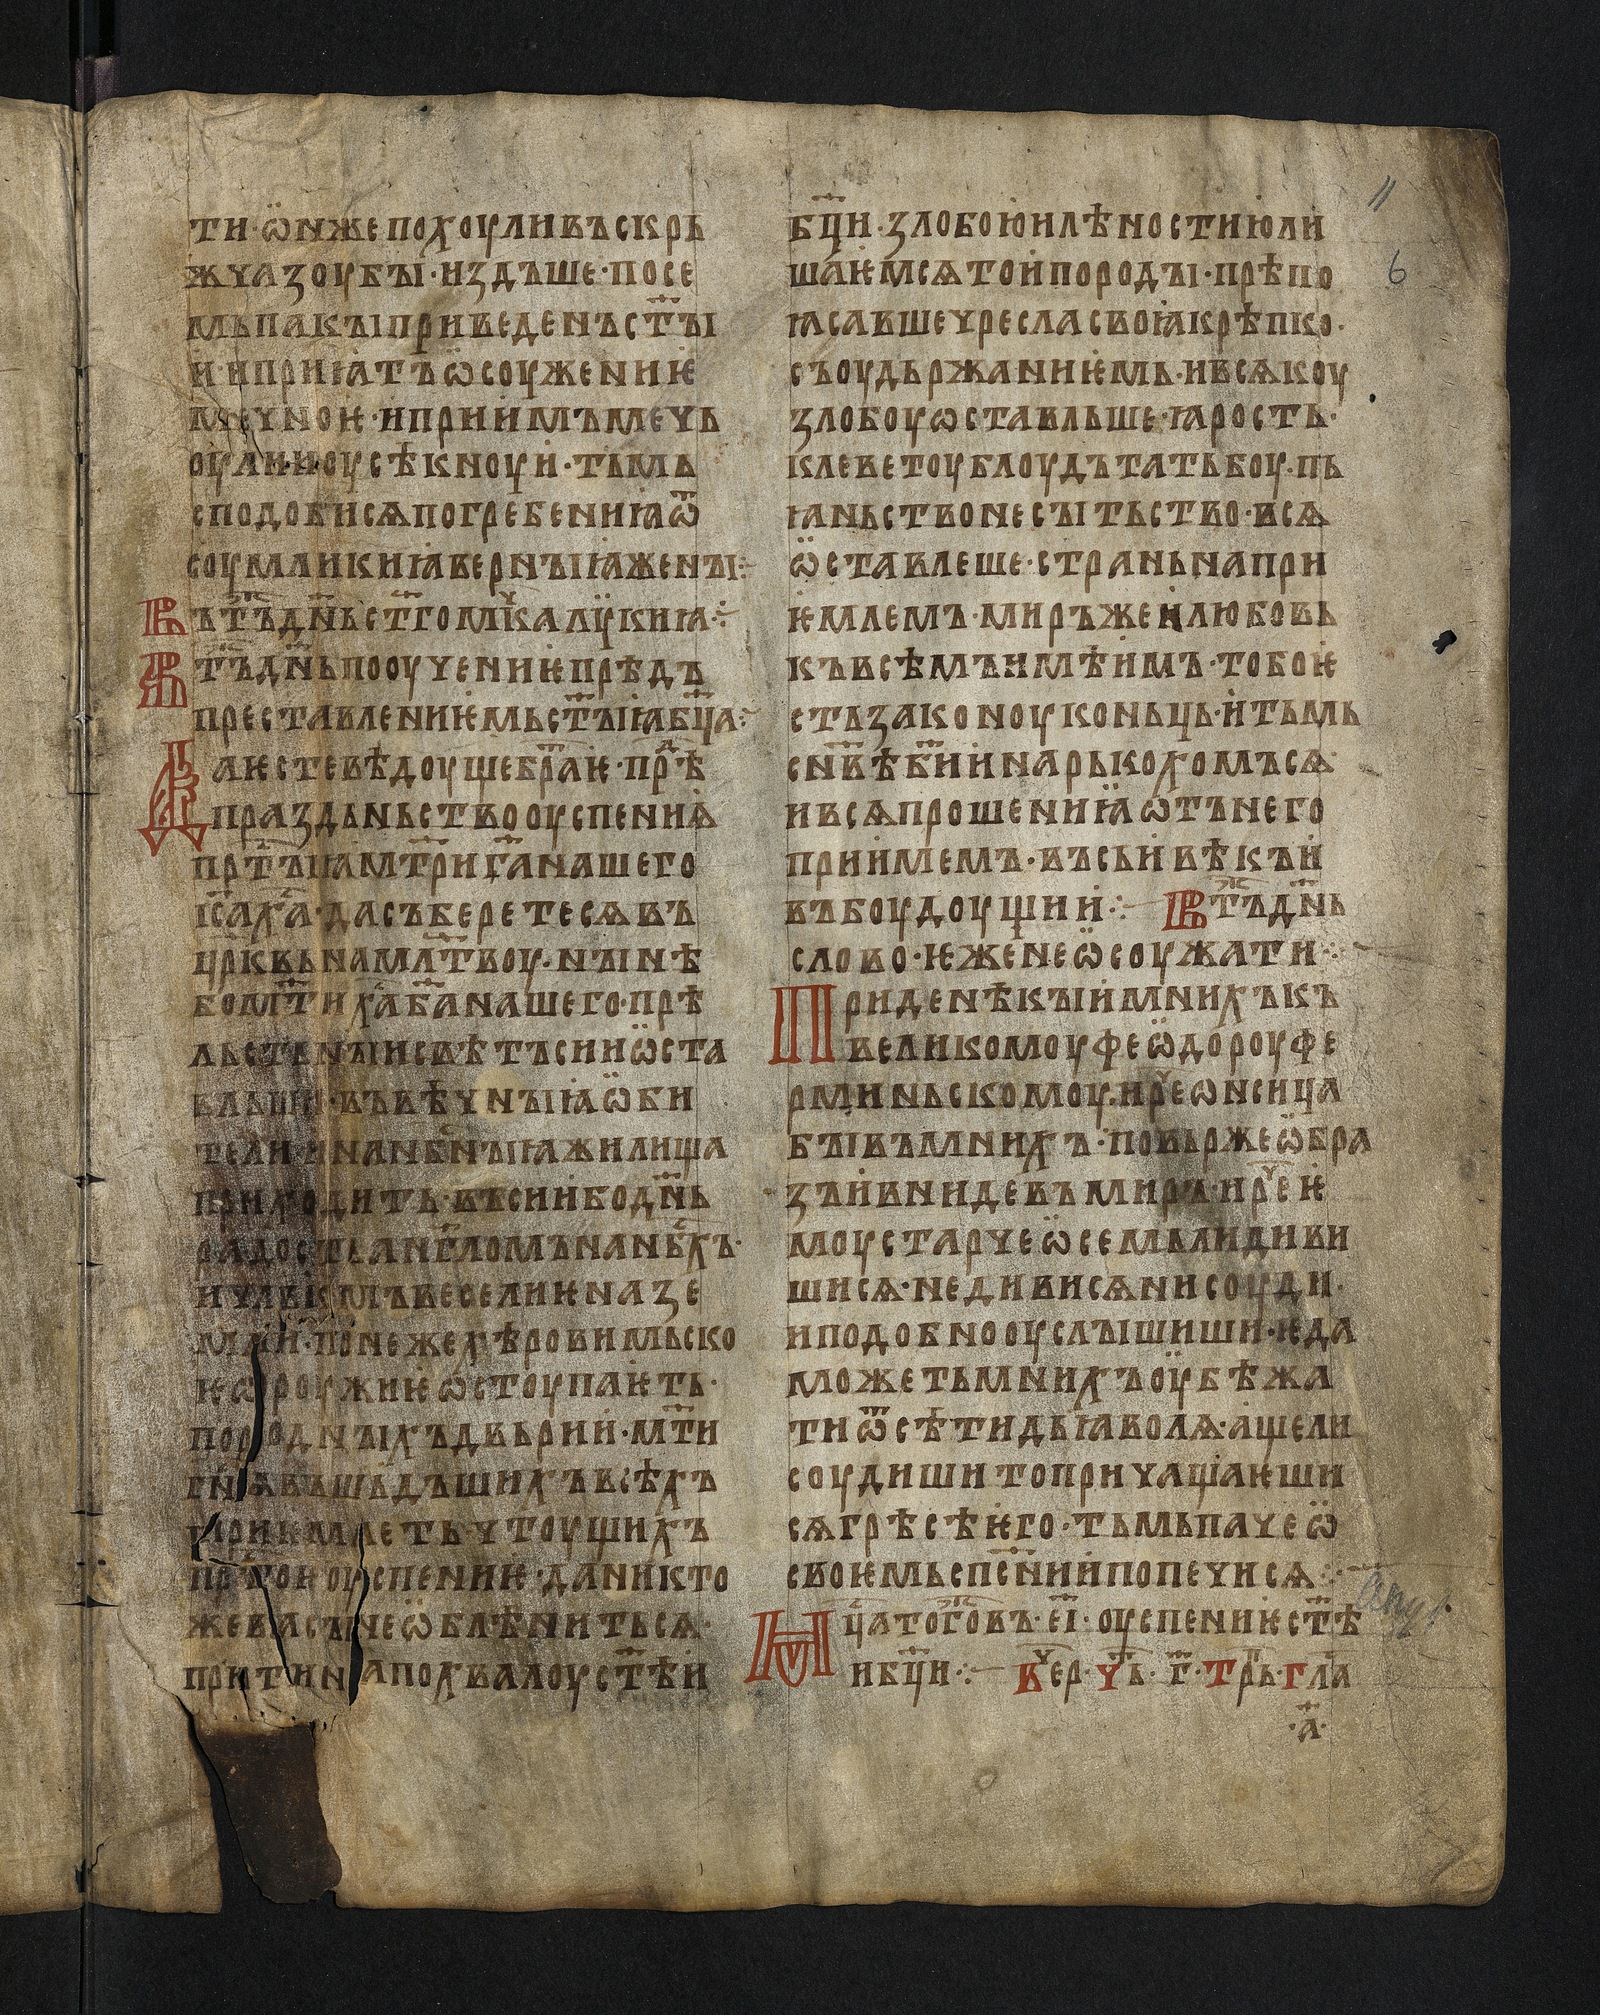 ти · ѡнжепохоуливъскрь
жчазоубꙑ · издъше · посе
мьпакꙑприведенъстꙑ
и · иприꙗтъѡсоуженик
мечнок · иприимъмечь
оулиноусѣкноуи · тѣмь
сподобисѧпогребениꙗѿ
соумликиꙗвернꙑꙗженꙑ ⁘
Вътъдньстгомкалꙋкиꙗ ⁘
Въ тъднь поѹчениѥ прѣдъ
преставлениѥмьстꙑꙗбца ⁘
Даѥстевѣдоущебраѥ · прѣ
праздьньствооуспениꙗ
пртꙑꙗмтриганашего
ісаха · дасъберетесѧвъ
црквьнамлтвоу · нꙑнѣ
бомтихабанашего · прѣ
льстьнꙑисвѣтъсииѡста
вльши · въвѣчнꙑꙗѡби
тели · инанбнꙑꙗжилища
приходить · въсиибоднь
радостьанг҃ломънанбхъ ·
ичлвкмъвеселиѥназе
мли · понежехѣровимьско
ѥѡроужиѥѡстоупаѥть ·
породнꙑхъдвьрии · мти
гнѧвъшьдъшихъвсѣхъ
приѥмлеть · чтоущихъ
прⷭтоѥоуспениѥ · даникто
жевасънеѡблѣнитьсѧ ·
притинапохвалоустѣи
бци · злобоюилѣностиюли
шаѥмсѧтоипородꙑ · прѣпо
ꙗсавшечресласвоꙗкрѣпко ·
съоудьржаниѥмь · ивсѧкоу
злобоуѡставльше · ꙗрость ·
клеветоублоудътатьбоу · пь
ꙗньствонесꙑтьство · всѧ
ѡставлеше · страньнапри
ѥмлемъ · миръжеилюбовь
къвсѣмъимѣимъ · тобоѥ
стьзаконоуконьць · итѣмь
снвѣбиинарькохомъсѧ ·
ивсѧпрошениꙗѡтънего
приимемъ · въсьивѣкъи
въбоудоущии ⁘ Въ тъднь
слово · ѥженеѡсоужати ⁘
Приденѣкꙑимнихъкъ
великомоуфеѡдороуфе
рминьскомоу · иреѡнсица
бꙑвъмнихъ · повьржеѡбра
зъивнидевъмиръ · ирⷱеѥ
моустарчеѡсемьлидиви
шисѧ · недивисѧнисоуди ·
иподобнооуслꙑшиши · ѥда
можетьмнихъоубѣжа
тиѿсѣтидьꙗволѧ · ащели
соудишитопричащаѥши
сѧгрѣсѣѥго · тѣмьпачеѡ
своѥмьспениипопечисѧ ⁘
Мцатогⷤовъ · еі · оуспениѥстѣ
ибци ⁘ Вер · чⷭь · г · трь · гла
· а ·
11
6